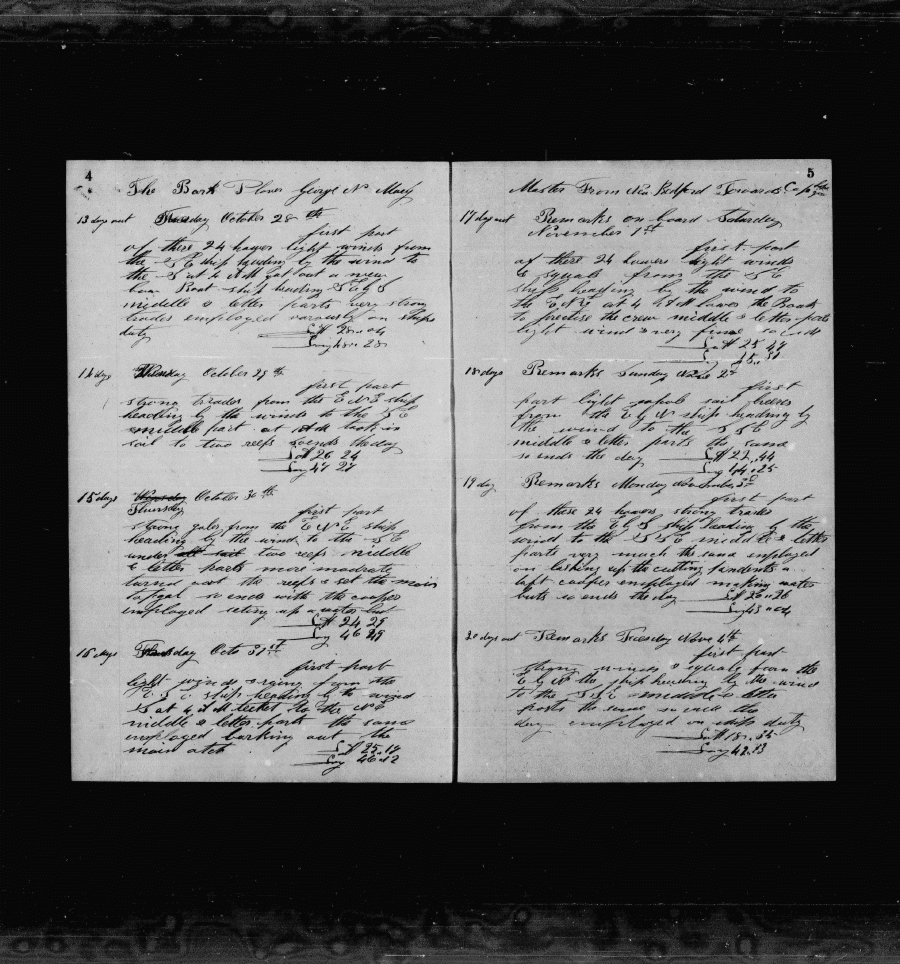 4
The Bark Plover George N Macy
13 days out Tuesday October 28 th
first part
of these 24 howers light winds from
the S E ship heading by the wind to
the S at 4 A M got out a new
bow Boat ship heading S E by S
middle & letter parts very strong
trades employed variously on ships
duty
Lat 25 04
Long 48 28
14 days October 29 th
first part
strong trades from the E N E ship
heading by the winds to the S E
middle part at A M took in
sail to two reefs so ends the day
Lat 26 24
Long 47 27
15 days Thursday October 30 th
Thursday
first part
strong gales from the E N E ship
heading by the wind to the S E
under all sail two reefs middle
& letter parts more modrate
turnd out the reefs & set the main
topgal so ends with the cooper
employed seting up a water but
Lat 24 29
Long 46 29
16 days day Octo 31 st
first part
light winds from the
E S E ship heading by the wind
S at 4 A M tacket to the N E
middle & letter parts the same
employed barking out the
main
Lat 25 14
Long 46 12
5
Master From New Bedford Towards Cape
17 day out Remarks on board Saturday
November 1st
first part
of these 24 howers light winds
& squals from the S E
ship heading by the wind to
the E N E at 4 A M lower the Boats
to practise the crew middle & letter parts
light wind & very fine so ends
Lat 25 47
18 days Remarks Sunday Nove 2d
first
part light whole sail breses
from the E by N ship heading by
the wind to the S S E
middle & letter parts the same
so ends the day
Lat 27 44
Long 44 25
19 day Remarks Monday November 3d
first part
of these 24 howers strong trades
from the E by S ship heading by the
wind to the S S E middle & letter
parts very much the same employed
on lashing up the cutting pendents a
loft cooper employed making water
buts so ends the day
Lat 26 36
Long 43 04
20 days out Remarks Tuesday Nove 4th
first part
strong winds & squals from the
E by N the ship heading by the wind
to the S S E middle & letter
parts the same so ends the
day employed on ships duty
Lat 18 35
Long 42 13